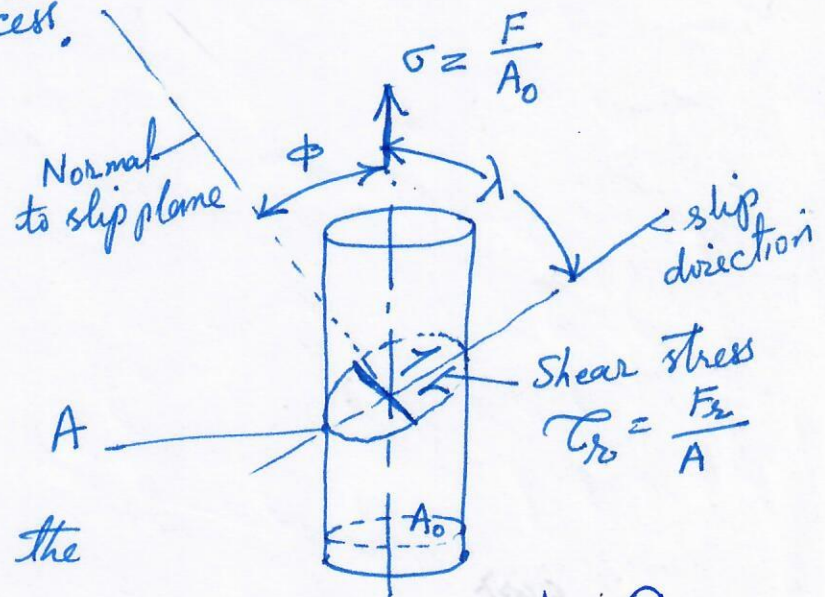 cess.
σ = F
A₀
Normal
to slip plane
ϕ
λ
slip
direction
Shear stress
τᵣ = Fᵣ
A
A
the
A₀